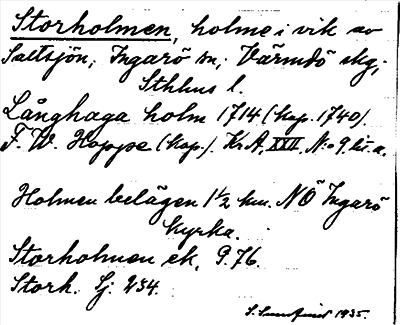 Storholmen, holme i vik av
Saltsjön, Ingarö sn; Värmdö skg;
Sthlms l.
Långhaga holm 1714 (kop. 1740).
F. W. Hoppe (kop.). Kr. A. XXII, N:o 9 lit. a.
Holmen belägen 1½ km. NÖ Ingarö
kyrka.
Storholmen ek. 9.76.
Storh. Sj. 234.
S. 1935.